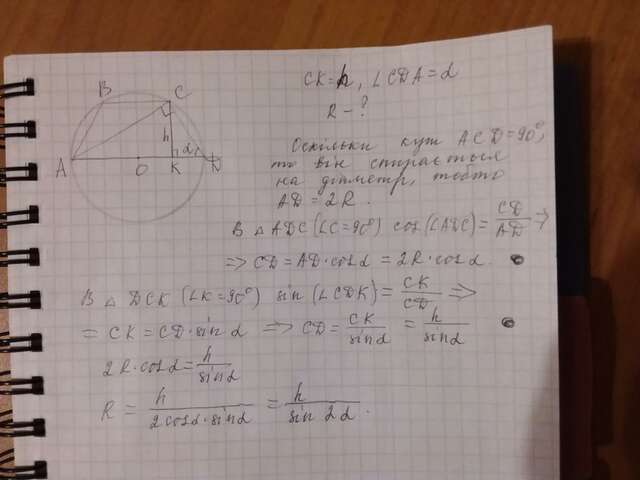 B C
h
α
A O K D
CK=h, ∠CDA=α
R-?
Оскільки кут ACD=90°,
то він спирається
на діаметр, тобто
AD=2R.
В △ ADC (∠C=90°) cos(∠ADC)=CD/AD =>
=> CD=AD·cosα=2R·cosα.
В △ DCK (∠K=90°) sin(∠CDK)=CK/CD =>
= CK=CD·sinα => CD=CK/sinα=h/sinα
2R·cosα=h/sinα
R=h/2cosα·sinα=h/sin2α.